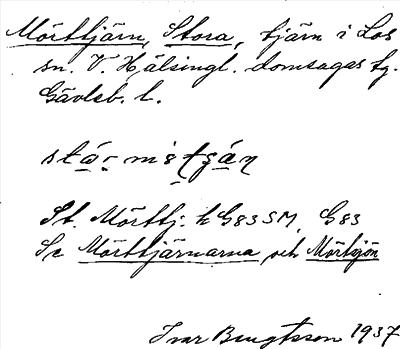 Mörttjärn, Stora, tjärn i Los
sn. V. Hälsingl. domsagas tg.
Gävleb. l.
St. Mörttj. h G83SM, G83
Se Mörttjärnarna och Mörtsjön
Ivar Bengtsson 1937